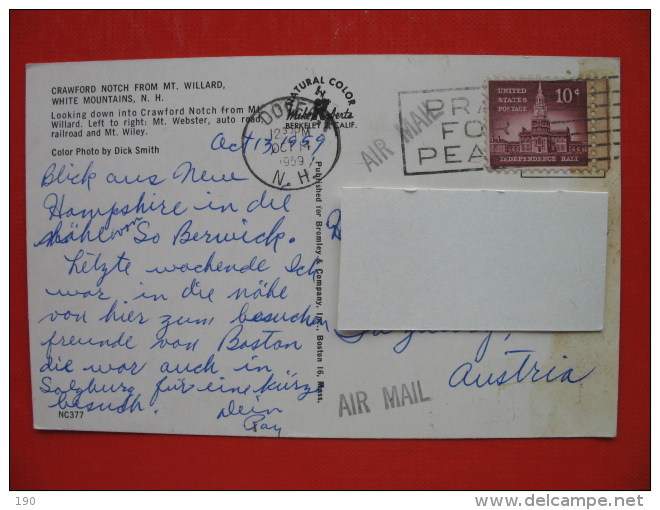 CRAWFORD NOTCH FROM MT. WILLARD,
WHITE MOUNTAINS, N. H.
Looking down into Crawford Notch from Mt.
Willard. Left to right: Mt. Webster, auto road,
railroad and Mt. Wiley.
Color Photo by Dick Smith
NATURAL COLOR
by
Mike Roberts
BERKELEY 2, CALIF.
DOVER
PM
OCT 14
1959
N. H.
AIR MAIL
PRA
FO
PEA
UNITED
STATES
POSTAGE
10¢
INDEPENDENCE HALL
Oct 13, 1959
Blick aus New
Hampshire in die
nähe von So Berwick.
Letzte wochende Ich
war in die nähe
von hier zum besuchen
freunde von Boston
die war auch in
Salzburg für eine kürz
besuch.
Dein
Ray
Published for Bromley & Company, Inc., Boston 16, Mass.
Austria
AIR MAIL
NC377
190
delcampe.net